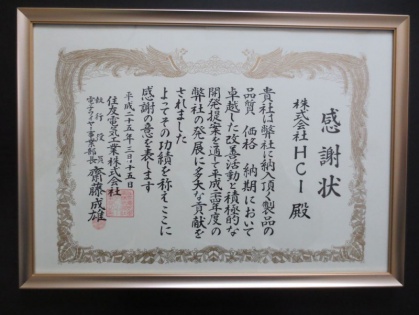 感謝状
株式会社HCI 殿
貴社は弊社に納入頂く製品の
品質 価格 納期において
卓越した改善活動と積極的な
開発提案を通じて平成二十四年度の
弊社の発展に多大な貢献を
されました
よってその功績を称えここに
感謝の意を表します
平成二十五年三月十五日
住友電気工業株式会社
執行役員
電子ワイヤー事業部長 齋藤成雄